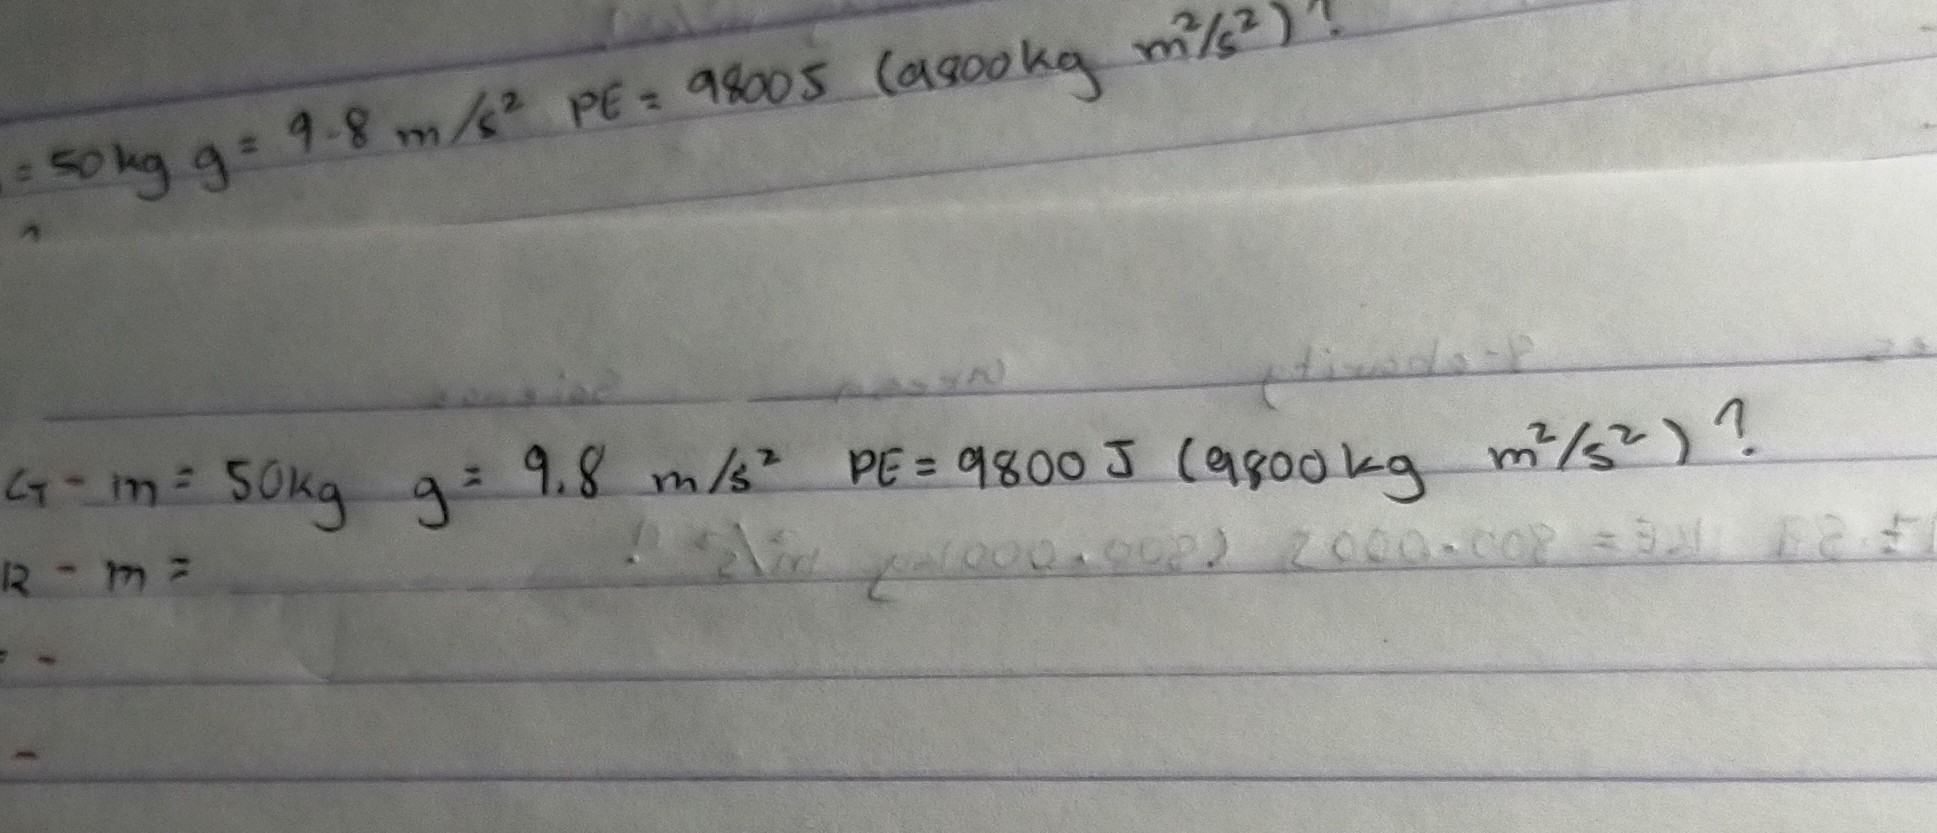 = 50kg g = 9.8 m/s² PE = 9800J (9800kg m²/s²)?
G - m = 50kg g = 9.8 m/s² PE = 9800 J (9800 kg m²/s²)?
R - m =
-
-